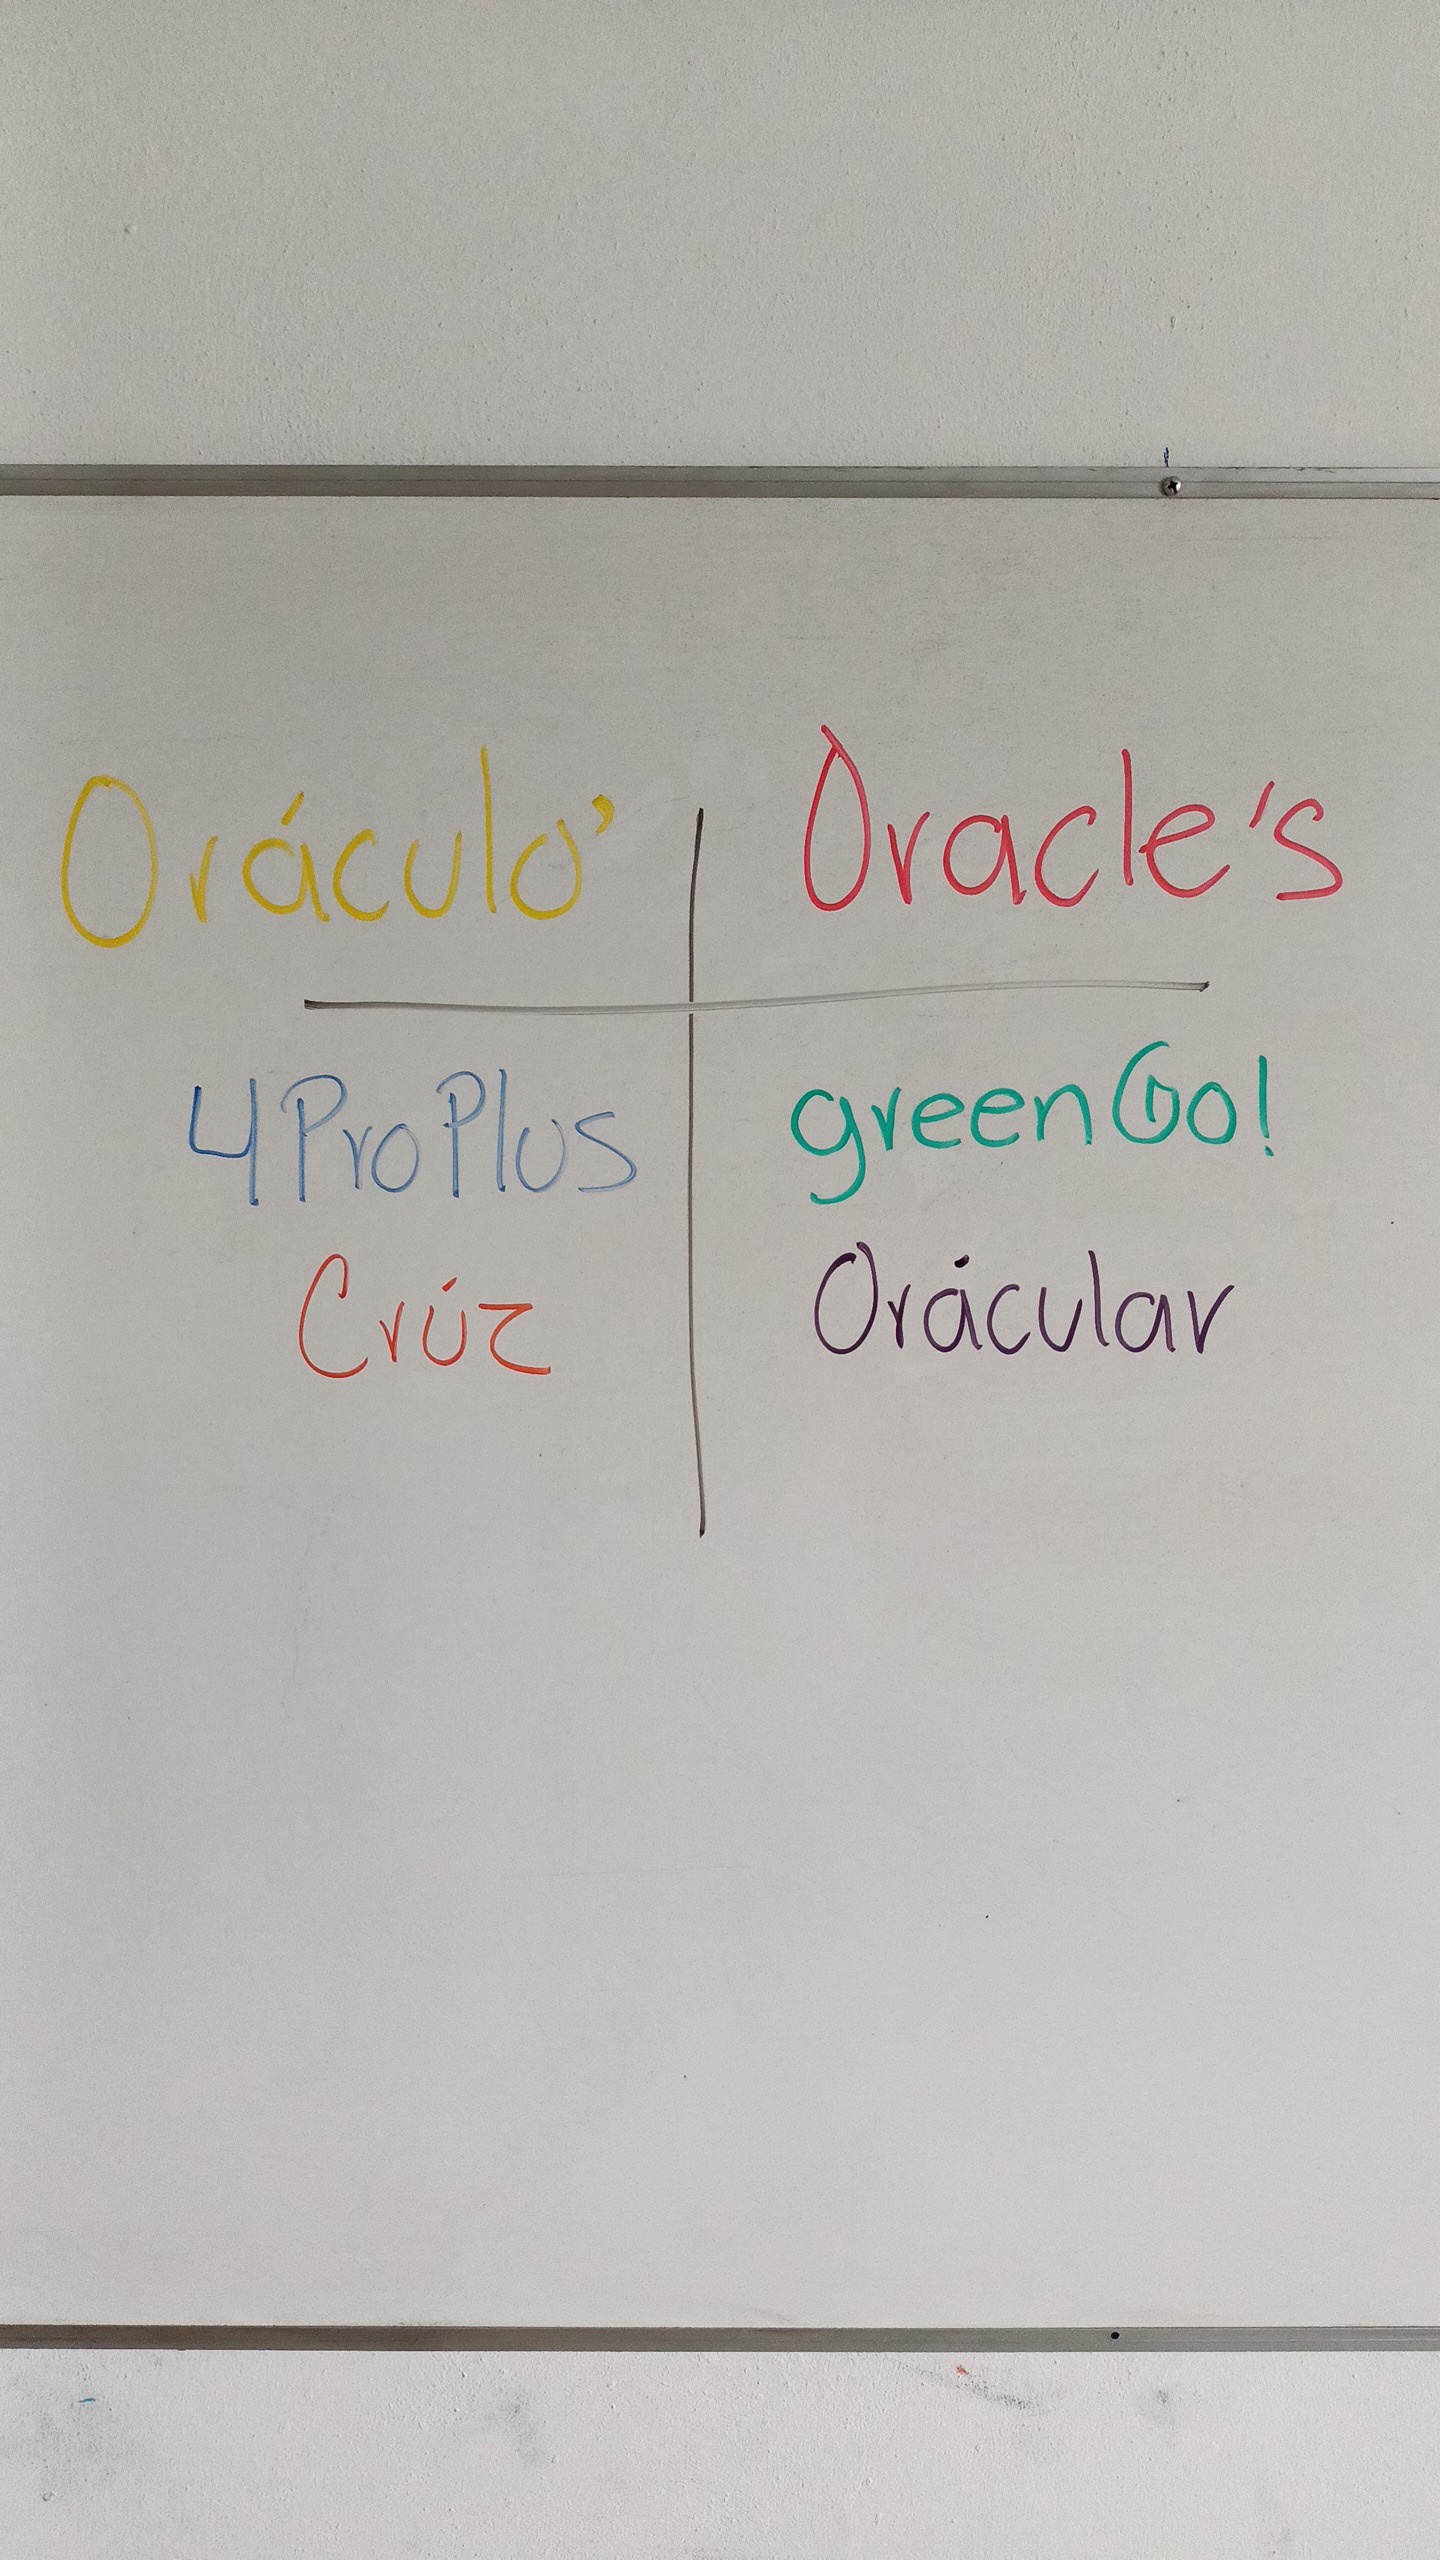 Oráculo’ Oracle's
4ProPlus greenGo!
Crúz Orácular